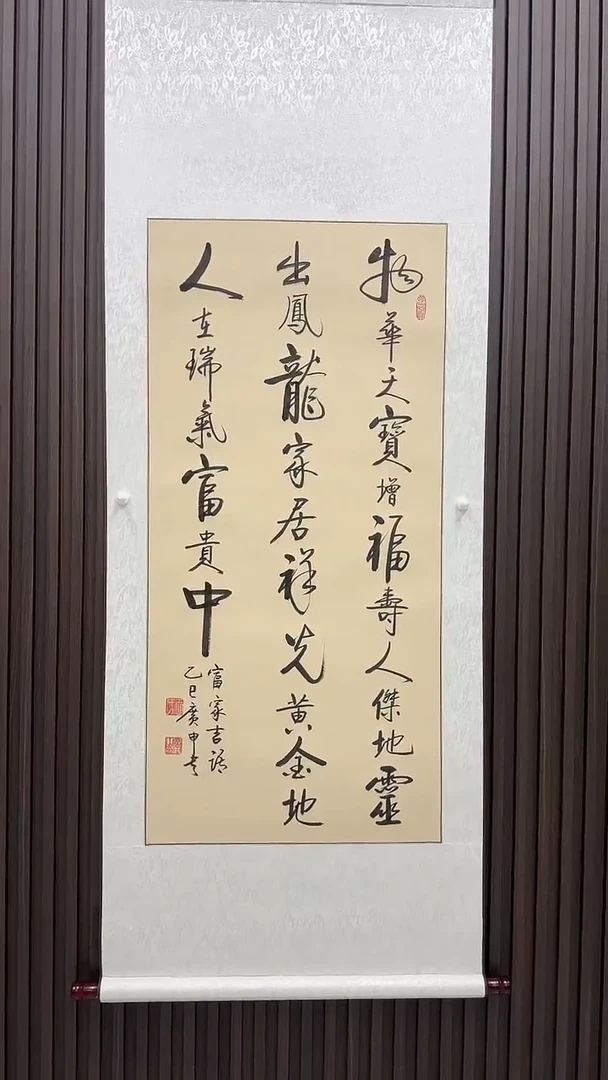 物華天寶增福壽人傑地靈
出鳳龍家居祥光黃金地
人在瑞氣富貴中
富家吉語
乙巳廣申書